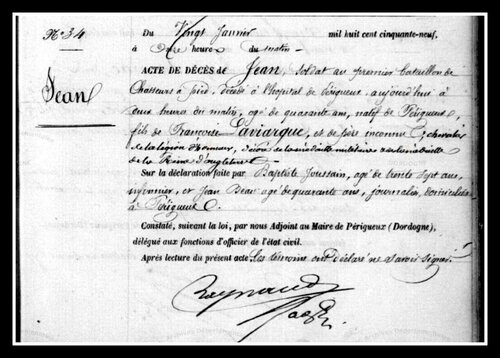 N° 34
Jean
Du Vingt Janvier mil huit cent cinquante-neuf,
à onze heures du matin
ACTE DE DÉCÈS de Jean, soldat au premier bataillon de
Chasseurs à pied, décédé à l'hôpital de Périgueux, aujourd'hui à
deux heures du matin, agé de quarante ans, natif de Périgueux,
fils de Françoise Laviarque, et de père inconnu, chevalier
de la légion d'honneur, décoré de la médaille militaire et de la médaille
de la Reine d'angleterre
Sur la déclaration faite par Baptiste Joussain, agé de trente sept ans,
et Jean agé de quarante ans, journalier, domiciliés
à Périgueux.
Constaté, suivant la loi, par nous Adjoint au Maire de Périgueux (Dordogne),
délégué aux fonctions d'officier de l'état civil.
Après lecture du présent acte, les témoins ont déclaré ne savoir signer.
Raynaud